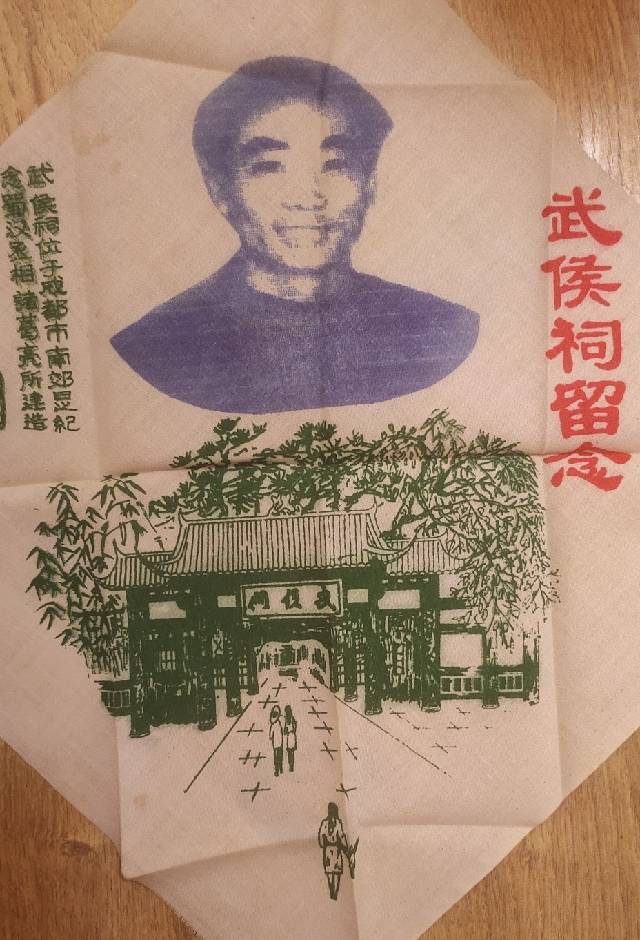 武侯祠留念
武侯祠位于成都市南郊是纪
念蜀汉丞相諸葛亮所建造
武侯祠